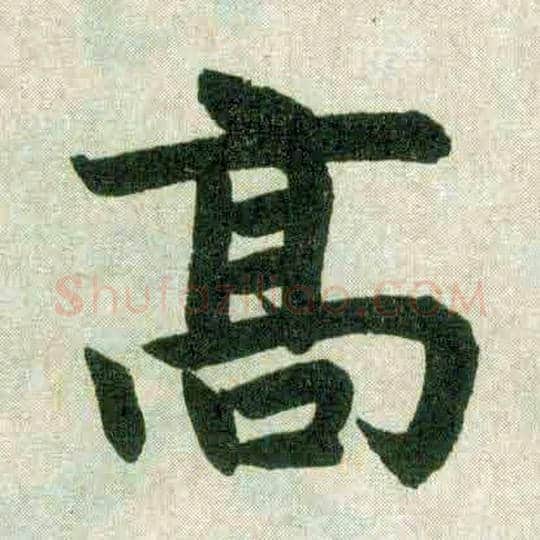 髙
ShufaZiliao.COM